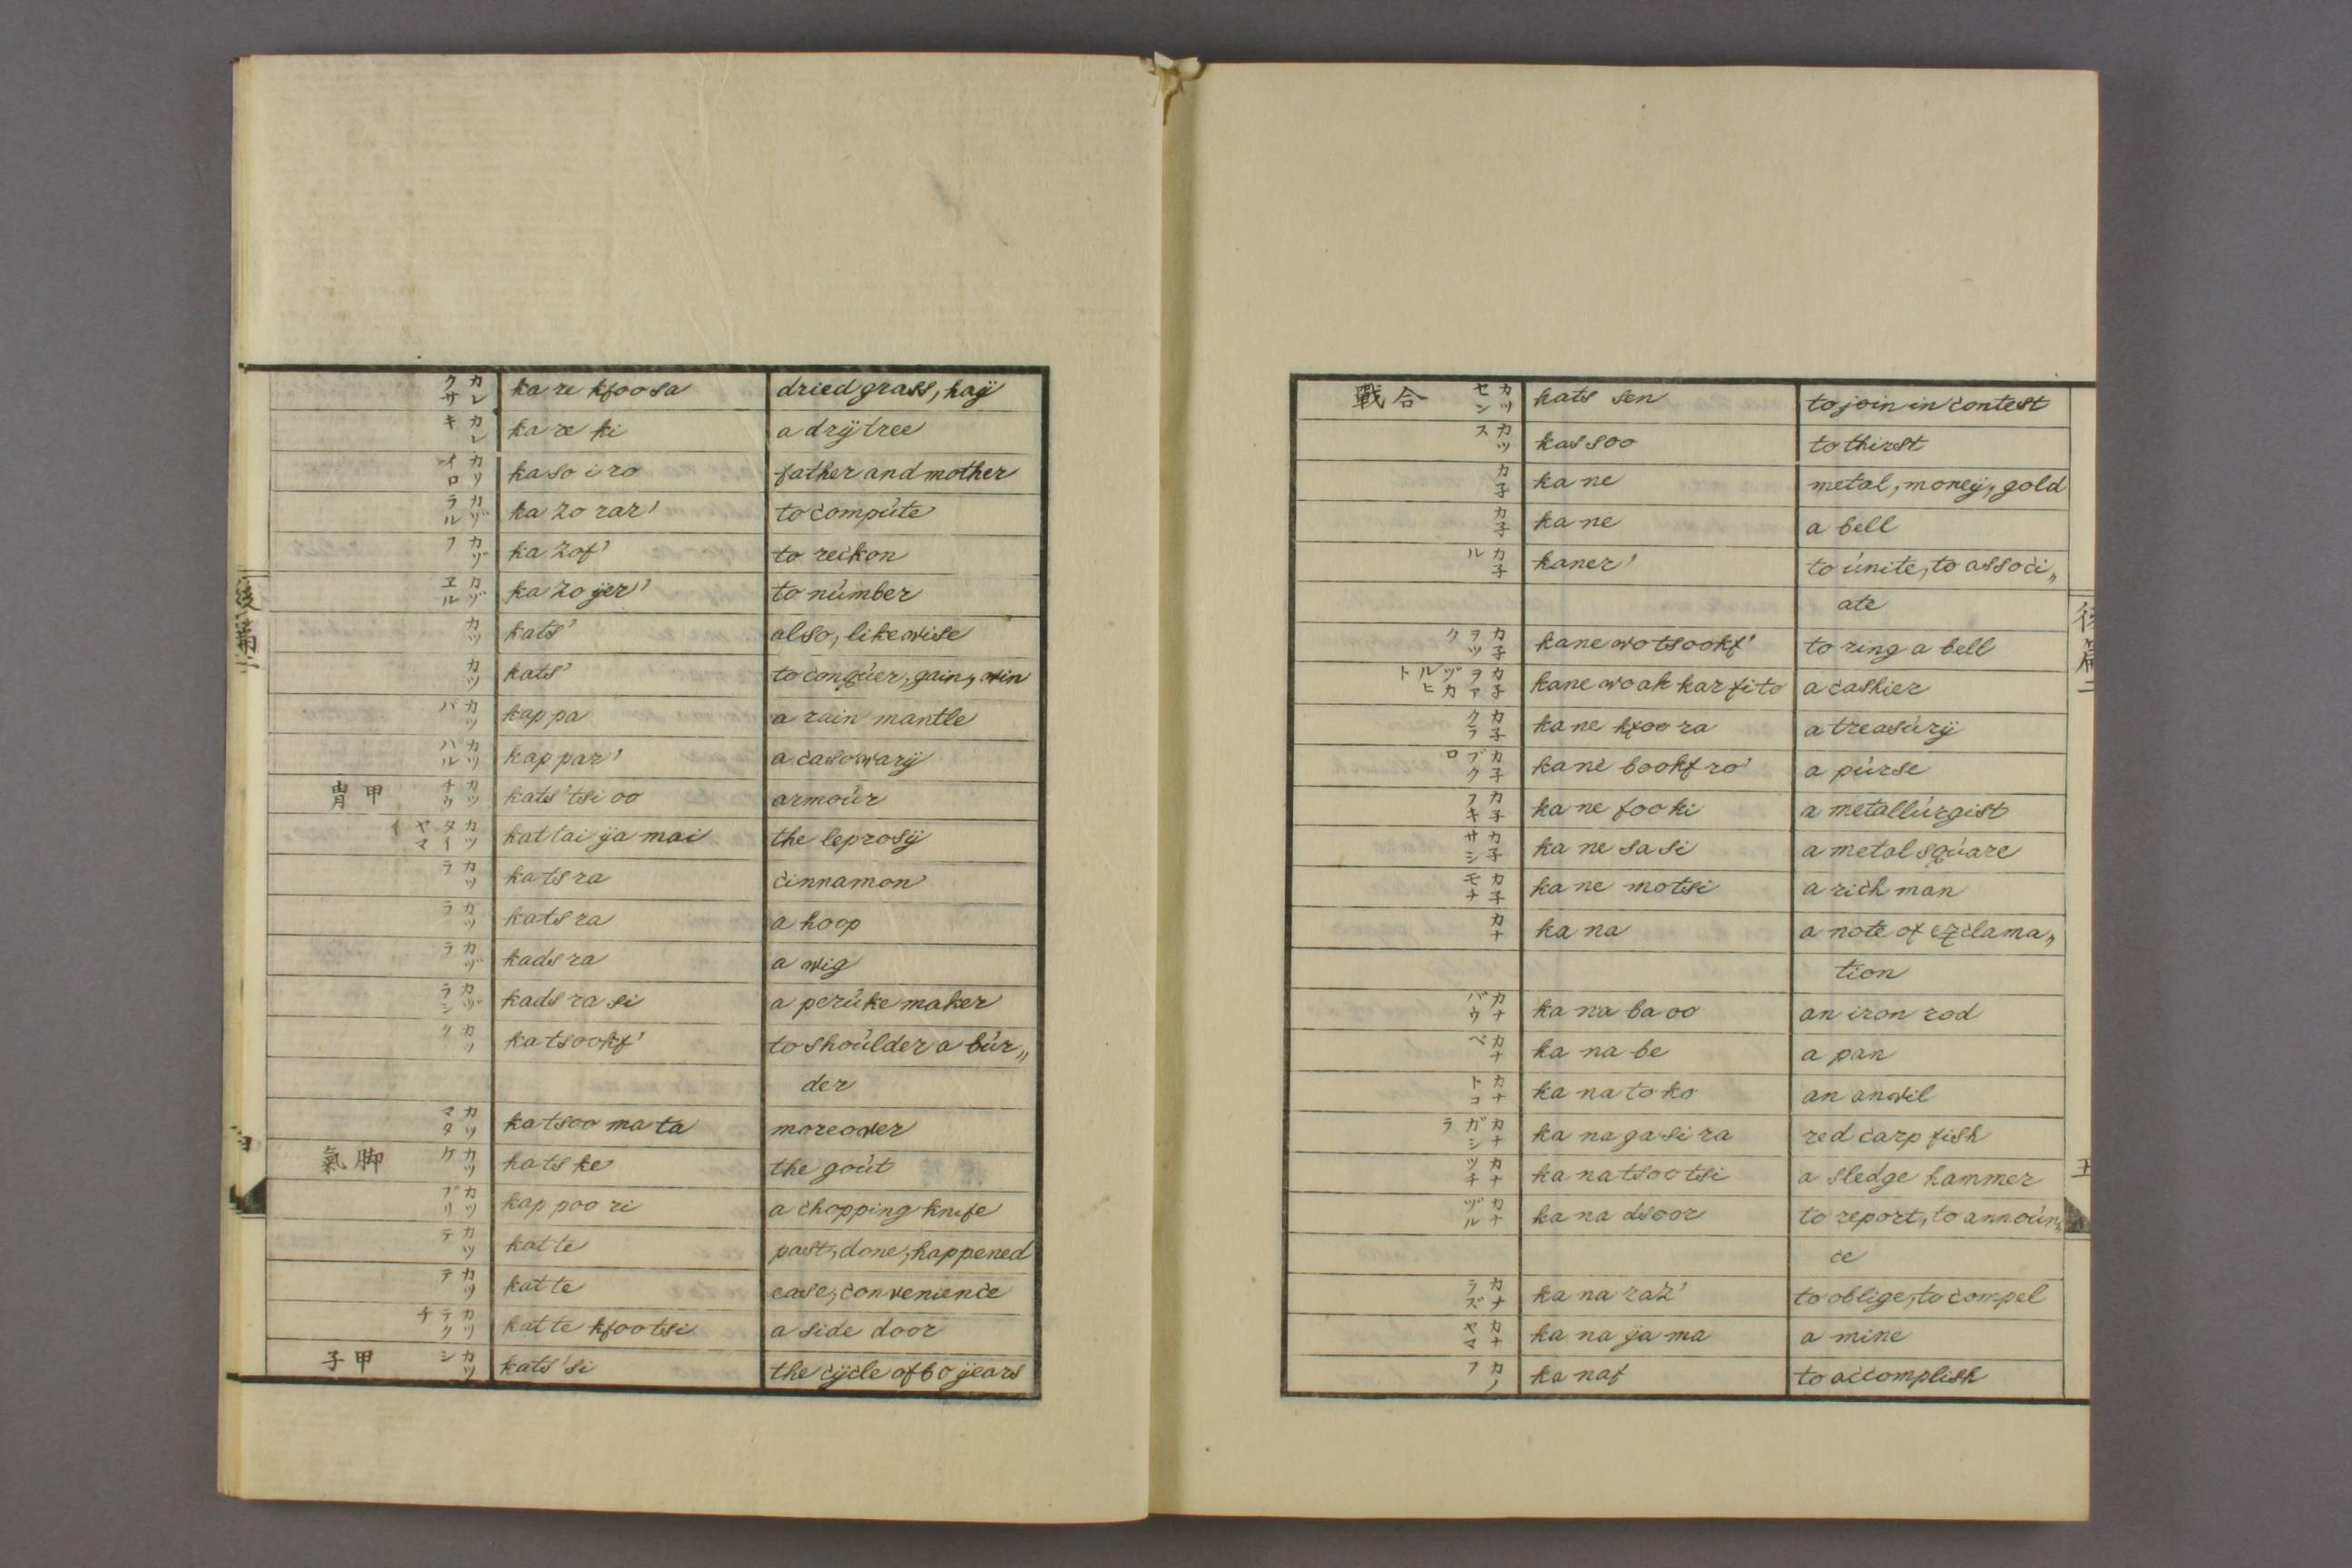 カレクサ ka re kfoosa dried grass, haÿ
カレキ ka re ki a drÿ tree
カソイロ ka so i ro father and mother
カゾラル ka zo rar' to compúte
カゾフ ka zof' to reckon
カゾヱル ka zo ÿer' to númber
カツ kats' also, likewise
カツ kats' to conqúer, gain, win
カツパ kap pa a rain mantle
カツパル kap par' a casowarÿ
甲冑 カツチウ kats' tsi oo armoúr
カツタイヤマイ kat tai ÿa mai the leprosÿ
カツラ kats ra cinnamon
カツラ kats ra a hoop
カヅラ kads ra a wig
カヅラシ kads ra si a perúke maker
カツク ka tsookf' to shoúlder a búr„
der
カツマタ ka tsoo ma ta moreover
脚氣 カツケ kats ke the goút
カツプリ kap poo ri a chopping knife
カツテ kat te past, done, happened
カツテ kat te ease, convenience
カツテクチ kat te kfootsi a side door
甲子 カツシ kats' si the cÿcle of 60 ÿears
後篇二
合戰 カツセン kats sen to join in contest
カツス kas soo to thirst
カ子 ka ne metal, moneÿ, gold
カ子 ka ne a bell
カ子ル kaner' to únite, to associ„
ate
カ子ヲツク kane wo tsookf' to ring a bell
カ子ヲアヅカルヒト kane wo ah kar fito a cashier
カ子クラ ka ne kfoo ra a treasúrÿ
カ子ブクロ ka ne bookf ro' a púrse
カ子フキ ka ne foo ki a metallúrgist
カ子サシ ka ne sa si a metal sqúare
カ子モチ ka ne motsi a rich man
カナ ka na a note of exclama„
tion
カナバウ ka na ba oo an iron rod
カナベ ka na be a pan
カナトコ ka na to ko an anvil
カナガシラ ka na ga si ra red carp fish
カナツチ ka na tsoo tsi a sledge hammer
カナヅル ka na dsoor to report, to announ„
ce
カナラズ ka na raz' to oblige, to compel
カナヤマ ka na ÿa ma a mine
カノフ ka naf to accomplish
後篇二